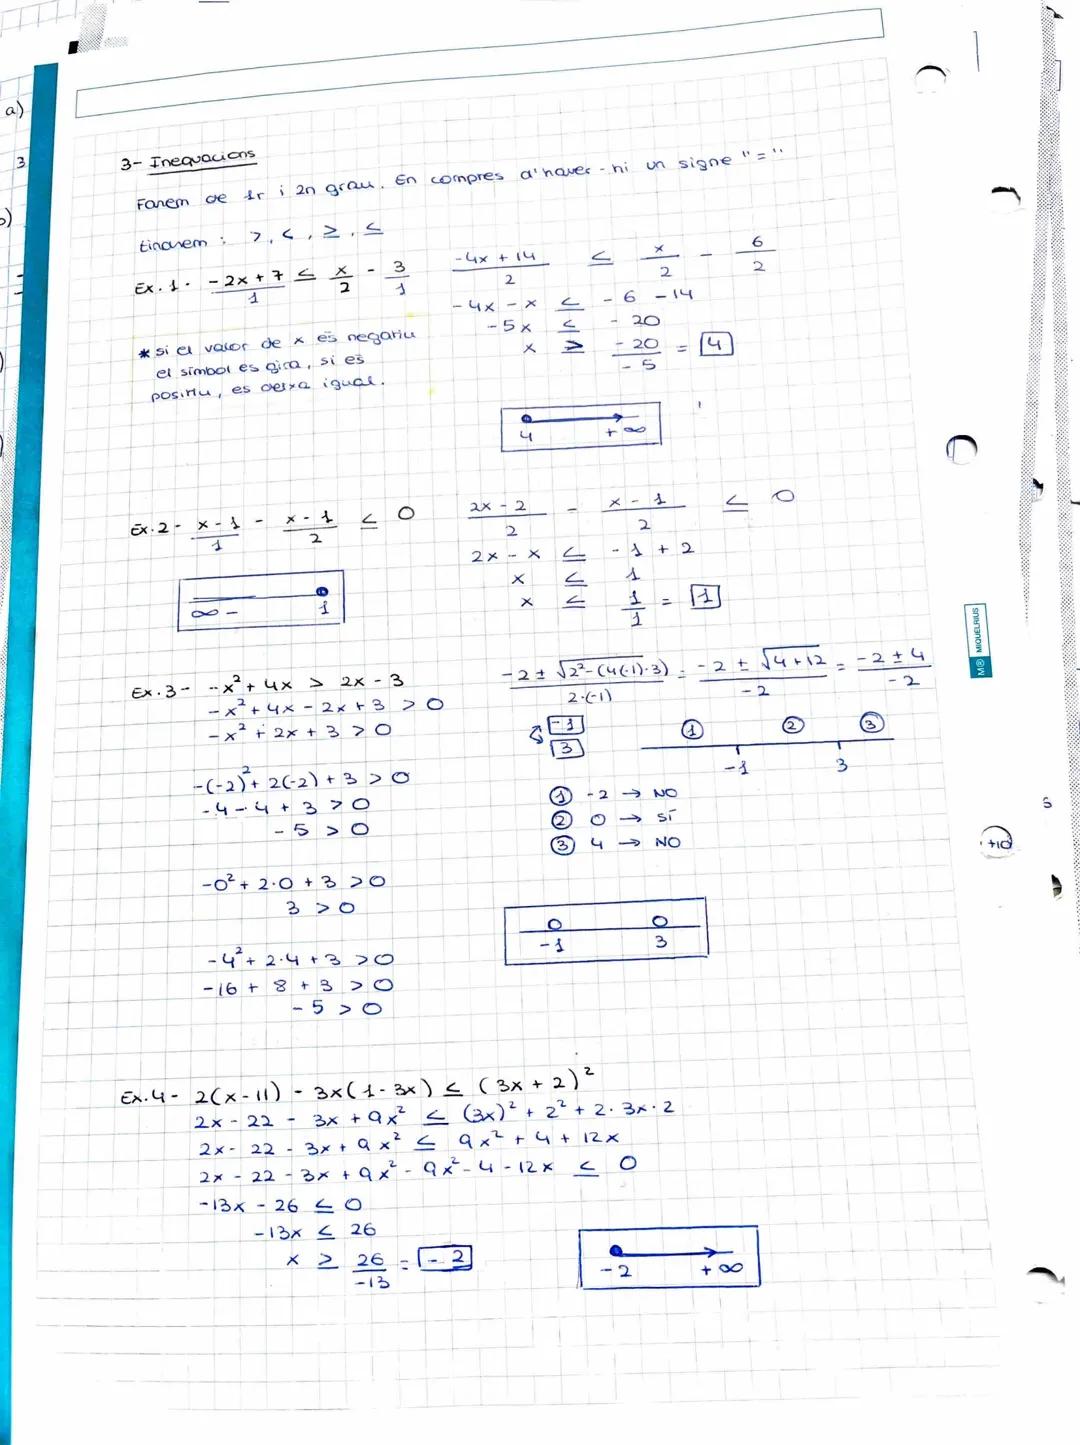 a)
3
3- Inequacions
Farem de 1r i 2n grau. En compres d'haver-hi un signe "="
tindrem: >, <, ≥, ≤
Ex.1- (-2x+7)/1 ≤ x/2 - 3/1
(-4x+14)/2 ≤ x/2 - 6/2
-4x - x ≤ -6 -14
-5x ≤ -20
x ≥ -20/-5 = 4
* si el valor de x és negatiu
el símbol es gira, si és
positiu, es deixa igual.
4 +∞
Ex.2- (x-1)/1 - (x-1)/2 ≤ 0
(2x-2)/2 - (x-1)/2 ≤ 0
2x - x ≤ -1 + 2
x ≤ 1
x ≤ 1/1 = 1
∞- 1
Ex.3- -x²+4x > 2x-3
-x²+4x-2x+3 > 0
-x²+2x+3 > 0
(-2±√(2²-(4(-1)·3)))/(2·(-1)) = (-2±√(4+12))/-2 = (-2±4)/-2
-1
3
① ② ③
-1 3
① -2 → NO
② 0 → SÍ
③ 4 → NO
-(-2)²+2(-2)+3 > 0
-4-4+3 > 0
-5 > 0
-0²+2·0+3 > 0
3 > 0
-4²+2·4+3 > 0
-16+8+3 > 0
-5 > 0
-1 3
Ex.4- 2(x-11) - 3x(1-3x) ≤ (3x+2)²
2x-22 - 3x+9x² ≤ (3x)²+2²+2·3x·2
2x-22-3x+9x² ≤ 9x²+4+12x
2x-22-3x+9x²-9x²-4-12x ≤ 0
-13x-26 ≤ 0
-13x ≤ 26
x ≥ 26/-13 = -2
-2 +∞
M® MIQUELRIUS
5
+10